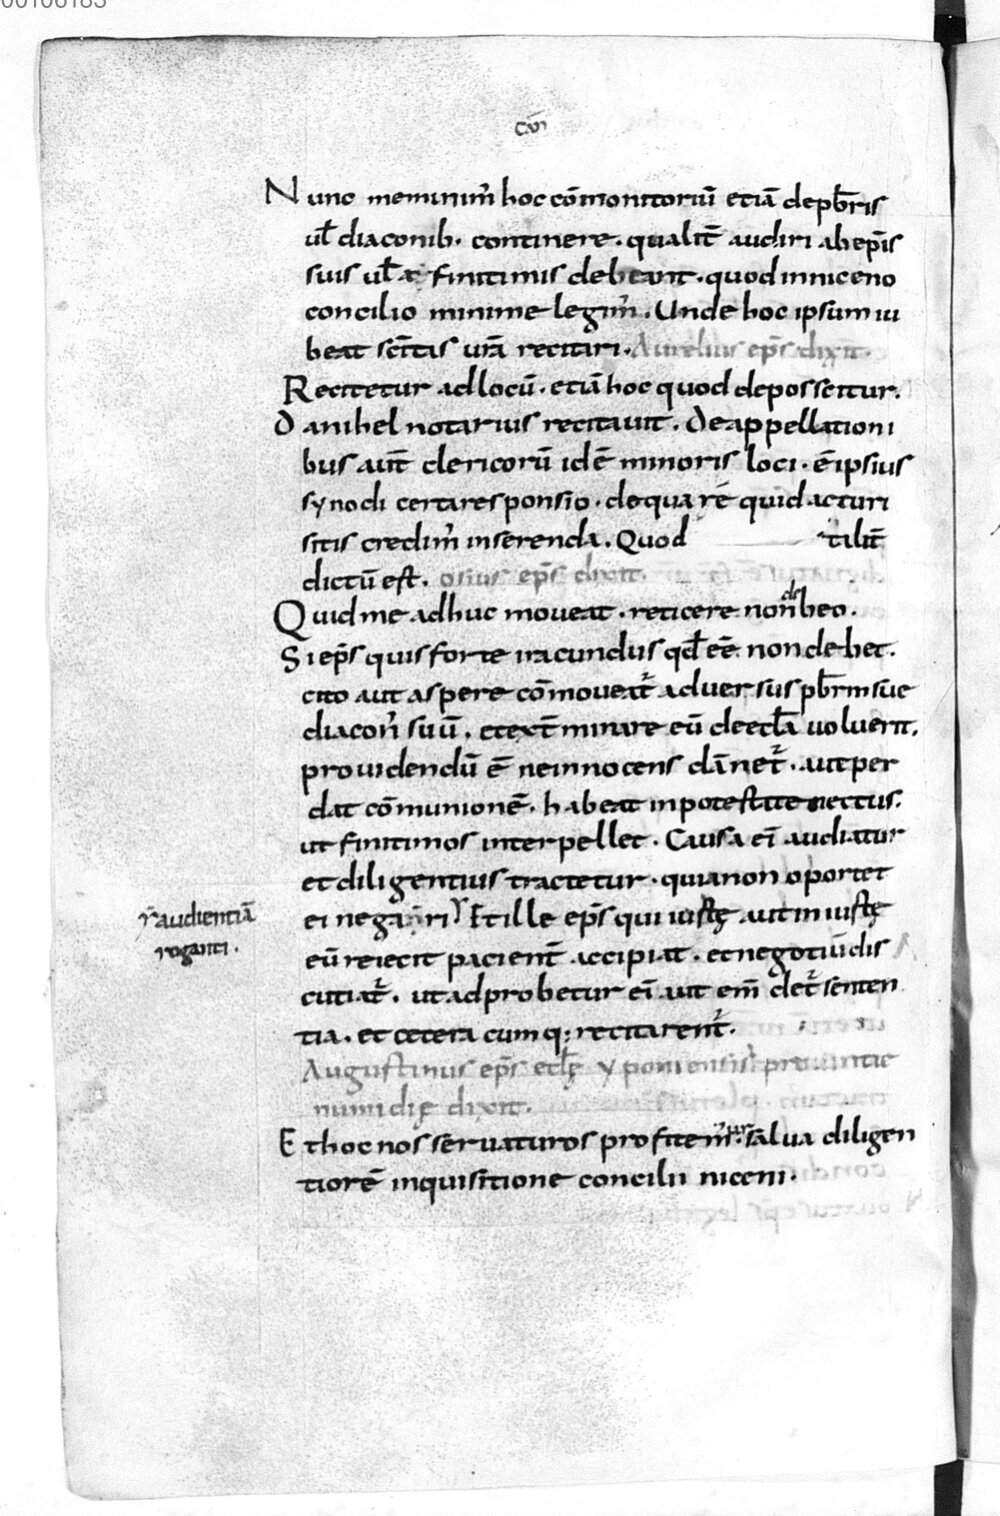 00106183
cvii
Nunc meminim̃ hoc cōmonitoriū etiā de pb̄ris
ul̄ diaconib. continere. qualit̄ audiri ab ep̄is
suis ul̄ a finitimis debeant. quod in niceno
concilio minime legim̃. Unde hoc ipsum iu
beat sc̄itas ur̄a recitari. Aurelius ep̄s dixit.
Recitetur ad locū. etiā hoc quod depossitur.
Danihel notarius recitauit. De appellationi
bus aut̄ clericorū idē minoris loci. ē ipsius
synodi certa responsio. de qua rē quid acturi
sitis credim̃ inserenda. Quod tilit̄
dictū est. osius ep̄s dixit.
Quid me adhuc moueat. reticere non debeo.
Si ep̄s quis forte iracundus qd̄ eē non debet.
cito aut aspere cōmoueat̃ aduersus pb̄rm sue
diacon̄ suū. et ext̄minare eū de eccl̄a uoluerit.
prouidendū ē ne innocens dānet̃. aut per
dat cōmunionē. habeat in potestate eiectus.
ut finitimos interpellet. Causa ei audiatur
et diligentius tractetur. quia non oportet
ei negari Et ille ep̄s qui iustę aut iniustę
r̄ audientiā
roganti.
eū reiecit pacient̄ accipiat. et negotiū dis
cutiat̃. ut ad probetur ei aut em̄det̃ senten
tia. et cetera cumq; recitarent̃.
Augustinus ep̄s eccl̄ę yponiensis prouintie
numidię dixit.
Et hoc nos seruaturos profitem̃. salua diligen
tiorē inquisitione concilii niceni.